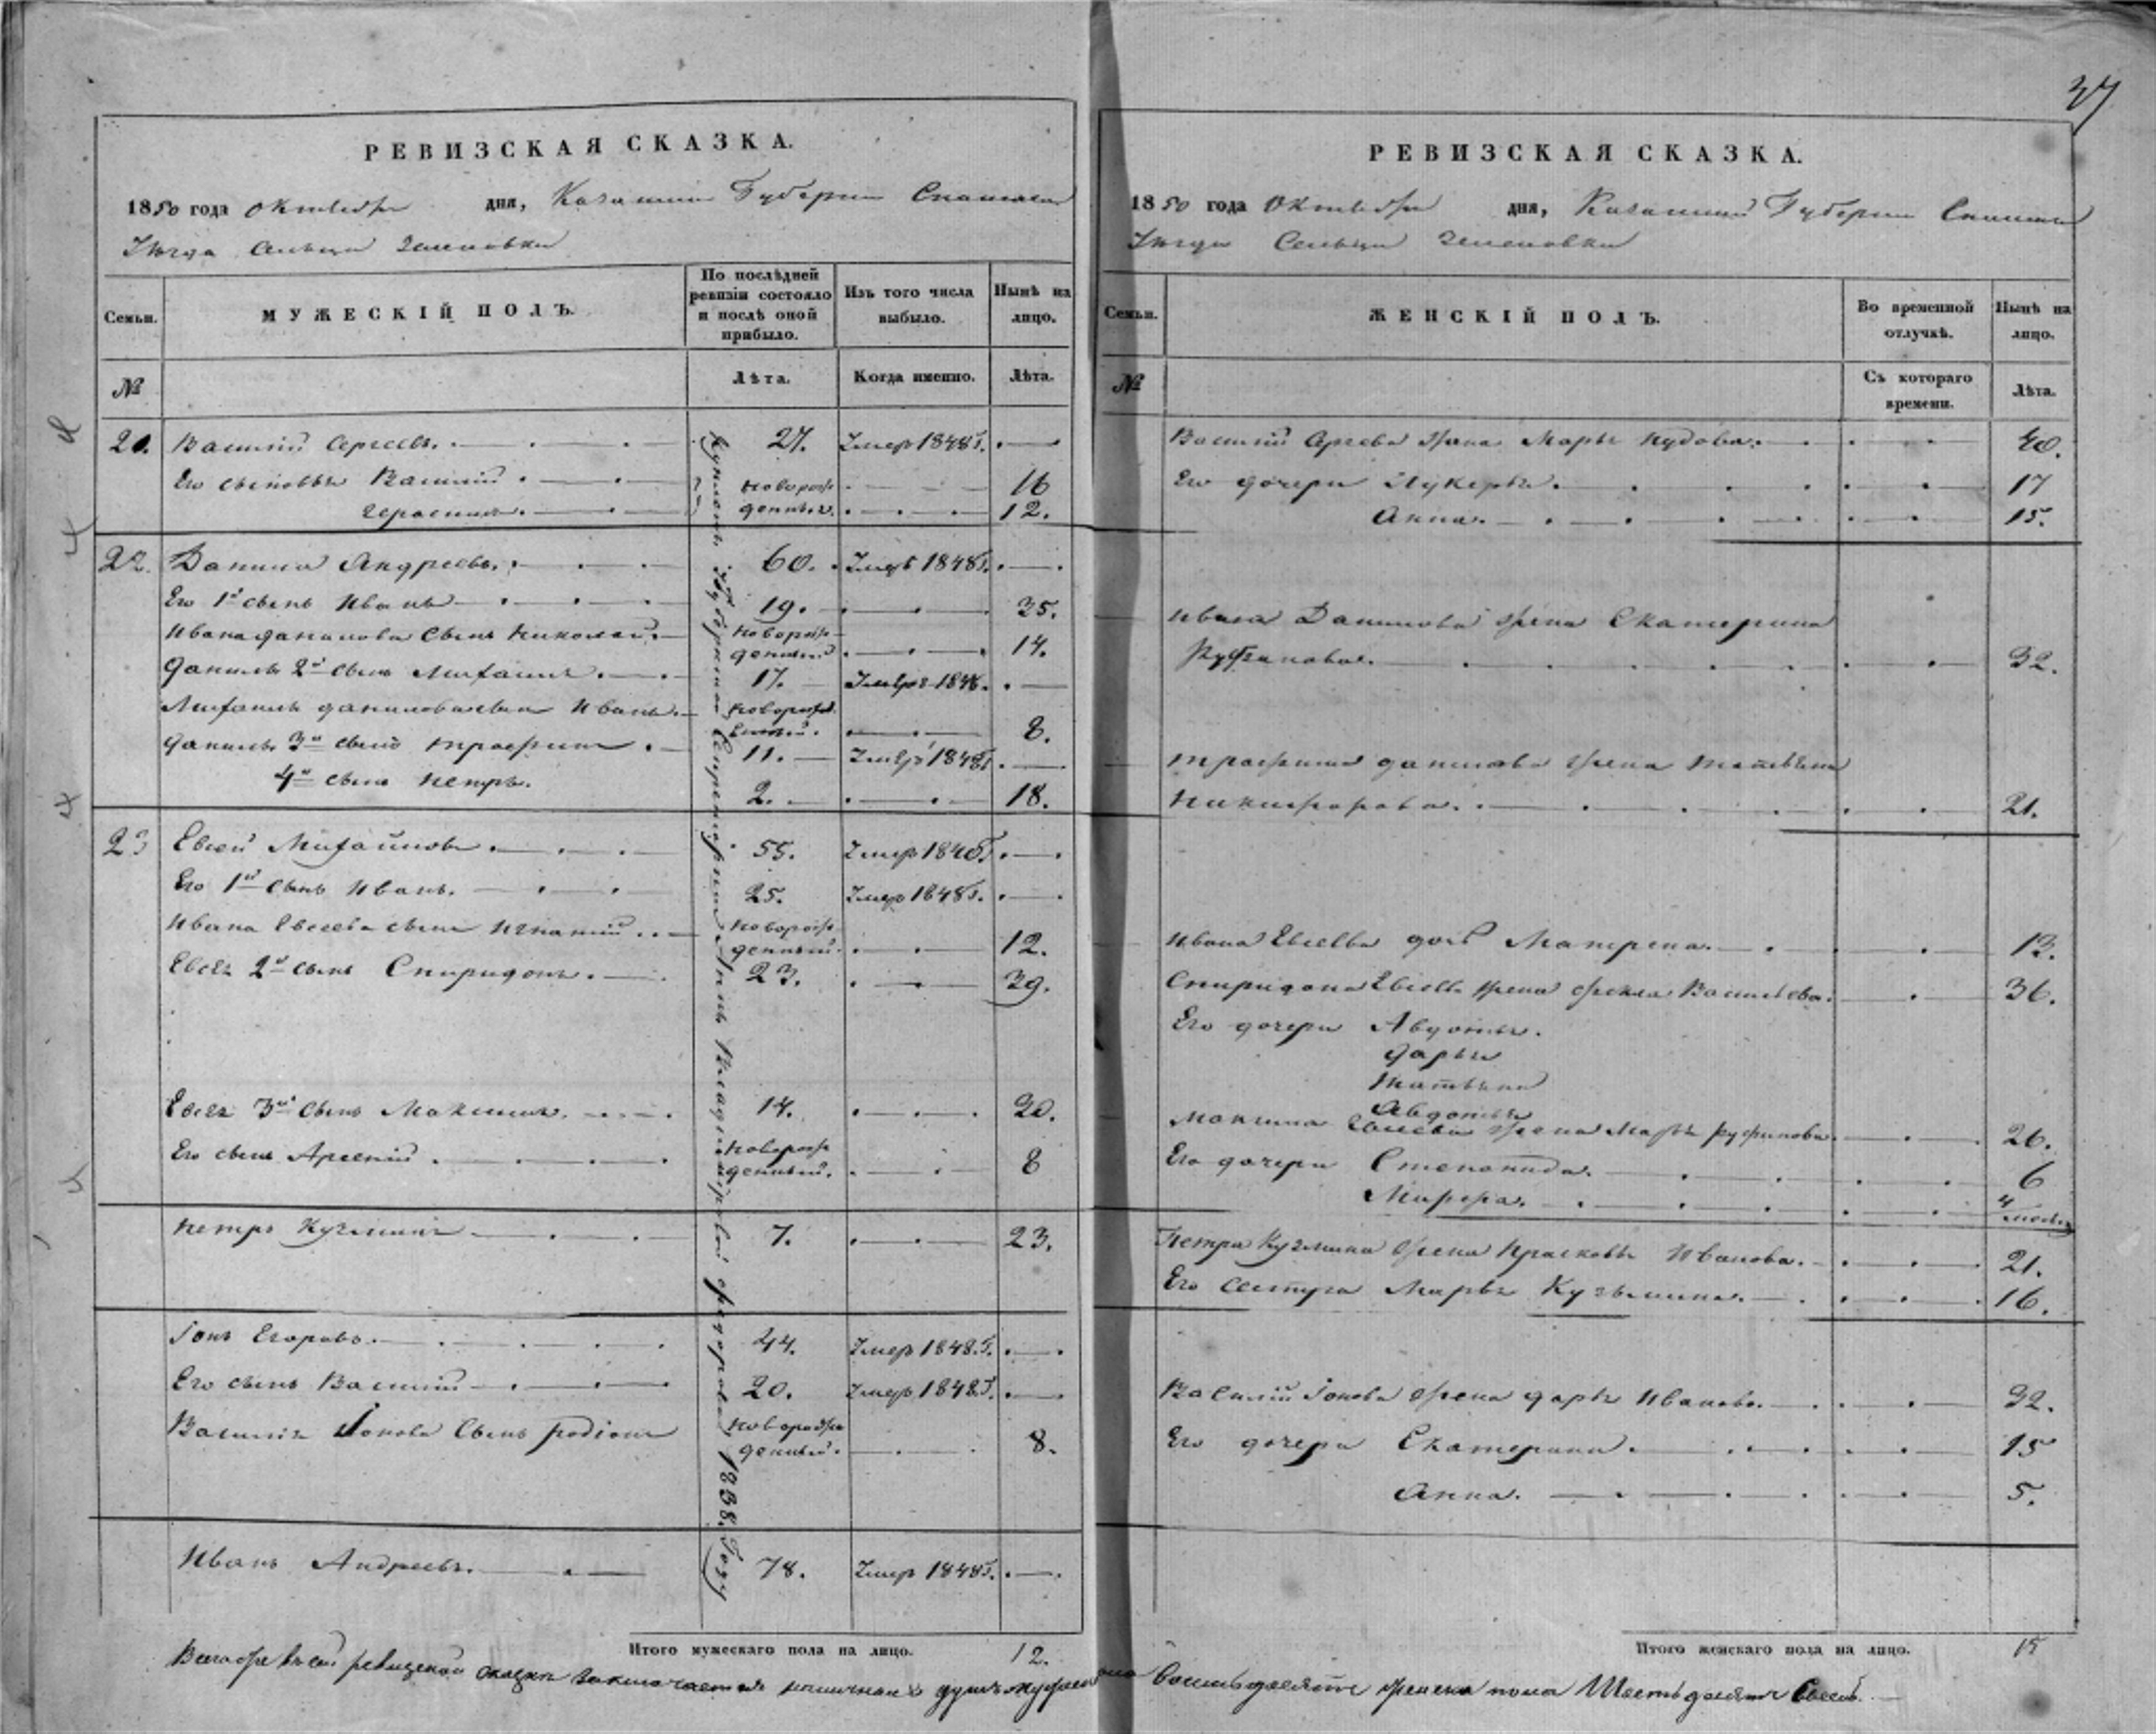 37
РЕВИЗСКАЯ СКАЗКА.
1850 года Октября дня, Казанской Губернии Спаскаго
Уезда Сельца Зеленовки
Семьи. МУЖЕСКІЙ ПОЛЪ. По послѣдней ревизіи состояло и послѣ оной прибыло. Изъ того числа выбыло. Нынѣ на лицо.
№ Лѣта. Когда именно. Лѣта.
Василий Сергеевъ. 27. Умеръ 1848 г.
Его сыновья Василий новорож 16
Герасимъ. денные. 12.
22. Данила Андреевъ. 60. Умеръ 1848 г.
Его 1й сынъ Иванъ 19. 35.
Ивана Данилова сынъ Николай. новорожденный 14.
Данилы 2й сынъ Михаилъ. 17. Умеръ
Михаила Данилова сынъ Иванъ. новорожденный. 8.
Данилы 3й сынъ Трофимъ. 11. Умеръ 1848 г.
4й сынъ Петръ. 2. 18.
23 Евсей Михайловъ. 55. Умеръ
Его 1й сынъ Иванъ. 25. Умеръ 1848 г.
Ивана Евсеева сынъ Игнатий новорожденный. 12.
Евсея 2й сынъ Спиридонъ. 23. 39.
Евсея 3й сынъ Максимъ. 14. 30.
Его сынъ Арсений. новорожденный. 8
Петръ Кузминъ 7. 23.
Іонъ Егоровъ. 44. Умеръ 1848 г.
Его сынъ Василий 20. Умеръ 1848 г.
Василия Іонова сынъ Родіонъ новорожденный. 8.
Иванъ Андреевъ. 78. Умеръ 1848 г.
Владимировой Федоровой 1838. Году
Итого мужескаго пола на лицо. 12.
РЕВИЗСКАЯ СКАЗКА.
1850 года Октября дня, Казанской Губернии Спаскаго
Уезда Сельца Зеленовки
Семьи. ЖЕНСКІЙ ПОЛЪ. Во временной отлучкѣ. Нынѣ на лицо.
№ Съ котораго времени. Лѣта.
Василия Сергеева жена Марья 40.
Его дочери Лукерья. 17
Анна. 15.
Ивана Данилова жена Екатерина
32.
Трофима Данилова жена Татьяна
Никифорова. 21.
Ивана Евсеева дочь Матрена. 13.
Спиридона Евсеева жена Фекла Васильева. 36.
Его дочери Авдотья.
Дарья
Татьяна
Авдотья
Максима Евсеева жена Марья 26.
Его дочери Степанида. 6
Марфа. 4
Петра Кузмина жена Прасковья Иванова. 21.
Его сестра Марья Кузьмина. 16.
Василия Іонова жена Дарья Иванова. 32.
Его дочери Екатерина. 15
Анна. 5.
Итого женскаго пола на лицо. 15
Всего же въ сей ревизской сказке заключается наличныхъ душъ мужеска пола восемьдесятъ женска пола Шестьдесятъ